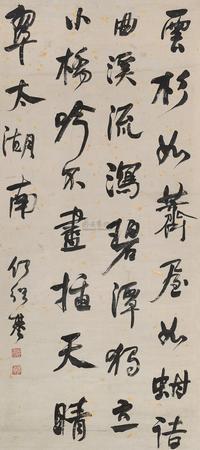 雲杉如薺屋如蚶詰
曲溪流瀉碧潭獨立
小橋吟不盡插天晴
翠太湖南 何紹基